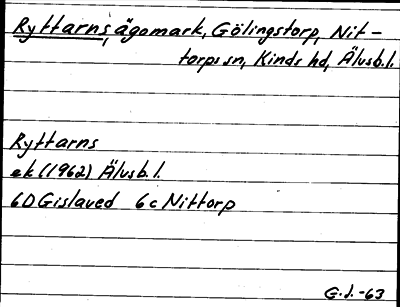 Ryttarns ägomark, Gölingstorp, Nit-
torps sn, Kinds hd, Älvsb.l.
Ryttarns
ek (1962) Älvsb.l.
6D Gislaved 6c Nittorp
G.J.-63